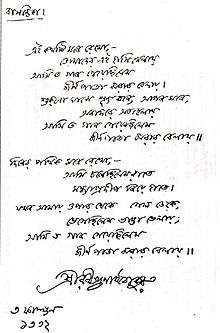 এই কথাটি মনে রেখো,—
তোমাদের এই হাসি খেলায়
আমি ত গান গেয়েছিলেম
জীর্ণ পাতা ঝরার বেলায়।
শুকনো ঘাসে শূন্য বনে, আপন মনে,
অনাদরে অবহেলায়
আমি ত গান গেয়েছিলেম
জীর্ণ পাতা ঝরার বেলায়॥
দিনের পথিক মনে রেখো,—
আমি চলেছিলেম রাতে
সন্ধ্যাপ্রদীপ নিয়ে হাতে।
যখন আমায় ওপার থেকে গেল ডেকে,
ভেসেছিলেম ভাঙা ভেলায়,
আমি ত গান গেয়েছিলেম
জীর্ণ পাতা ঝরার বেলায়॥
শ্রীরবীন্দ্রনাথ ঠাকুর
৩ ফাল্গুন